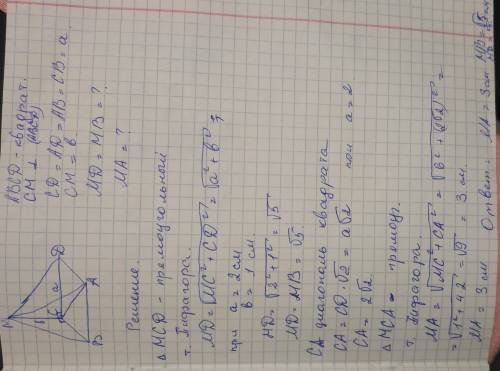 ABCD - квадрат.
CM ⊥ (ABCD)
CD = AD = AB = CB = a.
CM = b
MD = MB = ?
MA = ?
M
D
a
b
C
A
B
Решение.
△ MCD - прямоугольный
т. Пифагора.
MD = √(MC² + CD²) = √(a² + b²);
при a = 2 см
b = 1 см.
MD = √(2² + 1²) = √5
MD = MB = √5.
CA диагональ квадрата
CA = CD · √2 = a√2
CA = 2√2 при a = 2.
△ MCA - прямоуг.
т. Пифагора.
MA = √(MC² + CA²) = √(b² + (2√2)²) =
= √(1² + 4·2) = √9 = 3 см.
MA = 3 см Ответ: MA = 3 см MB = √5